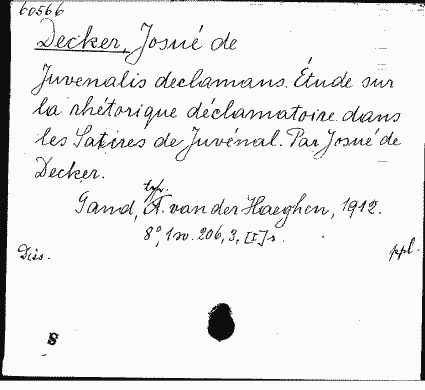 60566
Decker, Josué de
Juvenalis declamans. Étude sur
la rhétorique déclamatoire dans
les Satires de Juvénal. Par Josué de
Decker.
Gand, typ. A. van der Haeghen, 1912.
8°, 1 sv. 206, 3, [I] s.
Diss. ppl.
S